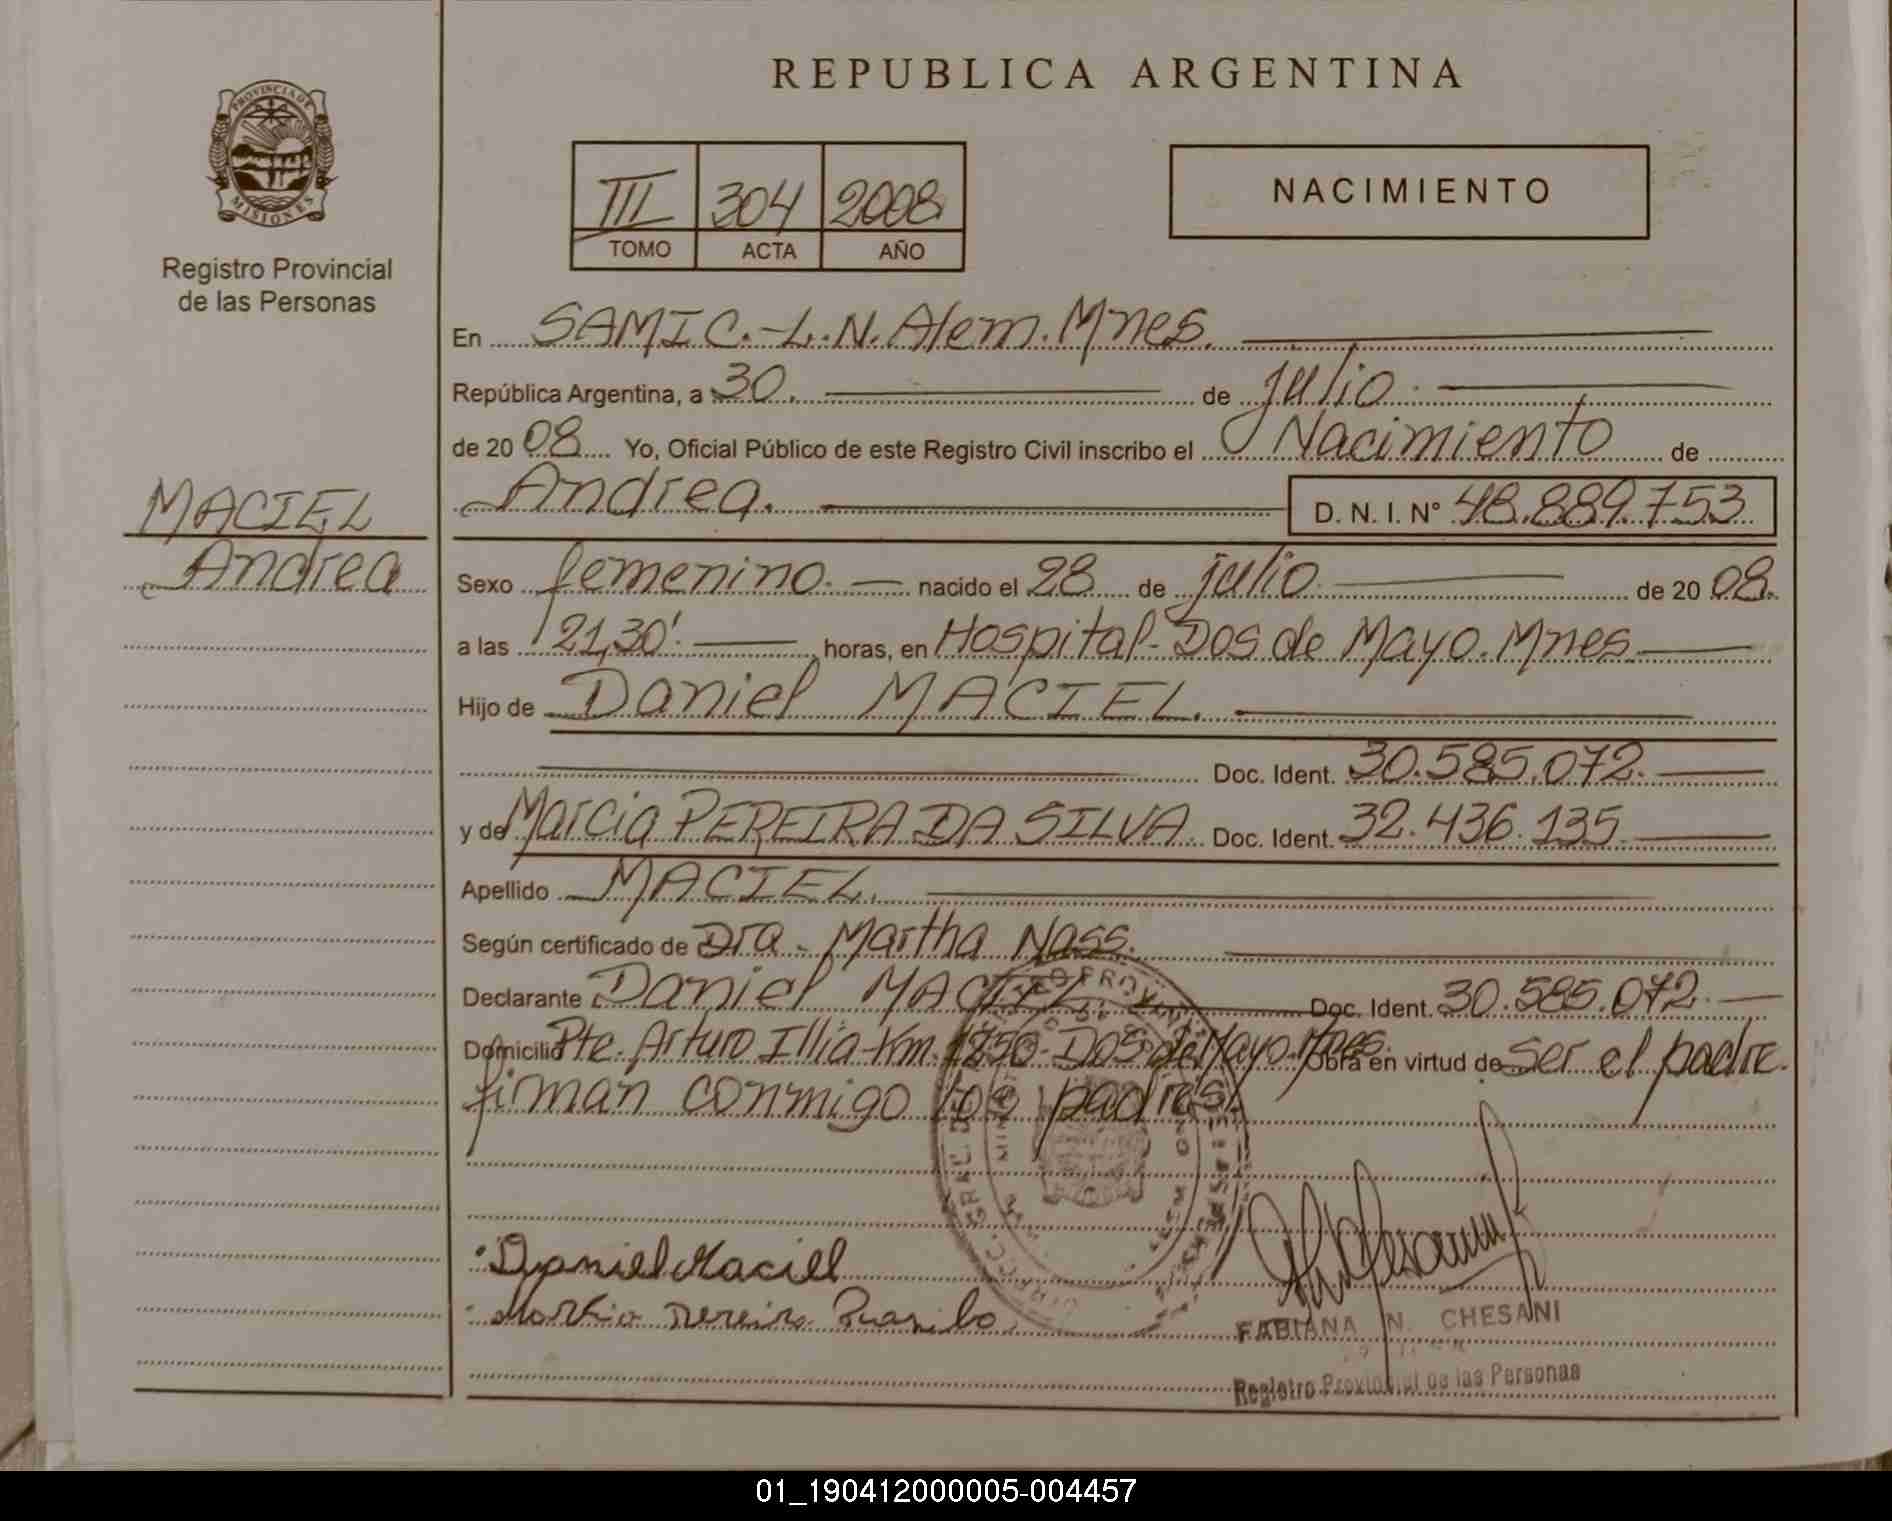 REPUBLICA ARGENTINA
PROVINCIA DE MISIONES
Registro Provincial
de las Personas
III 304 2008
TOMO ACTA AÑO
NACIMIENTO
MACIEL
Andrea
En SAMIC.-L.N.Alem.Mnes.
República Argentina, a 30. de julio.
de 20 08 Yo, Oficial Público de este Registro Civil inscribo el Nacimiento de
Andrea. D. N. I. N° 48.889.753
Sexo femenino. nacido el 28 de julio. de 20 08.
a las 21,30'. horas, en Hospital-Dos de Mayo.Mnes.
Hijo de Daniel MACIEL.
Doc. Ident. 30.585.072.
y de Marcia PEREIRA DA SILVA. Doc. Ident. 32.436.135
Apellido MACIEL.
Según certificado de Dra. Martha Nass.
Declarante Daniel MACIEL Doc. Ident. 30.585.072.
Domicilio Pte. Arturo Illia-Km. 1250-Dos de Mayo.Mnes. Obra en virtud de ser el padre.
firman conmigo los padres.
Daniel Maciel
FABIANA N. CHESANI
Registro Provincial de las Personas
01_190412000005-004457